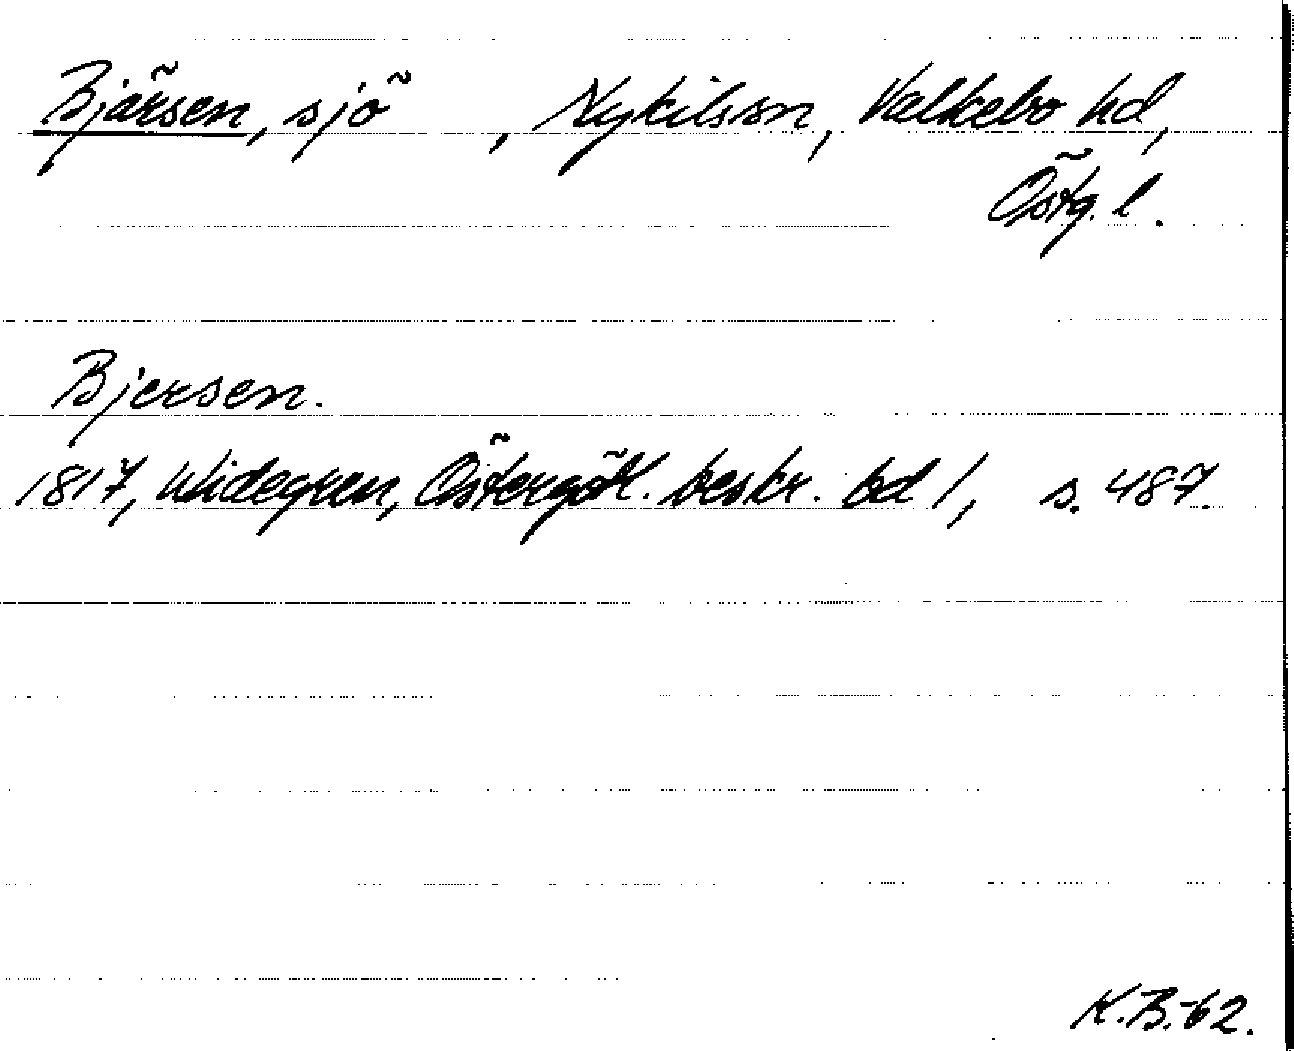 Bjärsen, sjö , Nykils sn, Valkebo hd,
Östg. l.
Bjersen.
1817, Widegren, Östergötl. beskr. bd 1, s. 487.
K.B.-62.